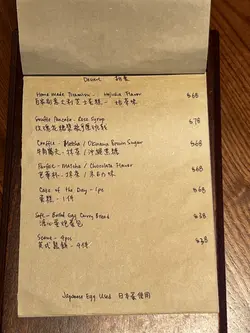 Dessert 甜素
Home Made Tiramisu - Hojicha Flavor $68
自家制意大利芝士蛋糕 - 焙茶味
Souffle Pancake - Rose Syrup $78
玫瑰花糖漿
Canffle - Matcha / Okinawa Brown Sugar $68
抹茶 / 沖繩黑糖
Parfait - Matcha / Chocolate Flavor $68
芭菲杯 - 抹茶 / 朱古力味
Cake of the Day - 1pc $68
蛋糕 - 1件
Soft - Boiled Egg Curry Bread $38
流心蛋咖喱包
Scone - 4pcs $38
英式鬆餅 - 4件
Japanese Egg Used 日本蛋使用